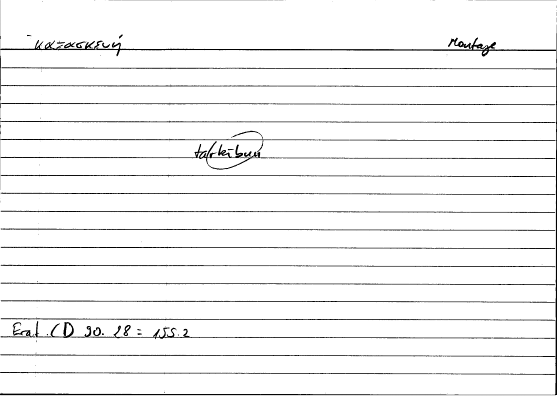 κατασκευή Montage
tarkībun
Gal. CD 90. 28 = 155.2